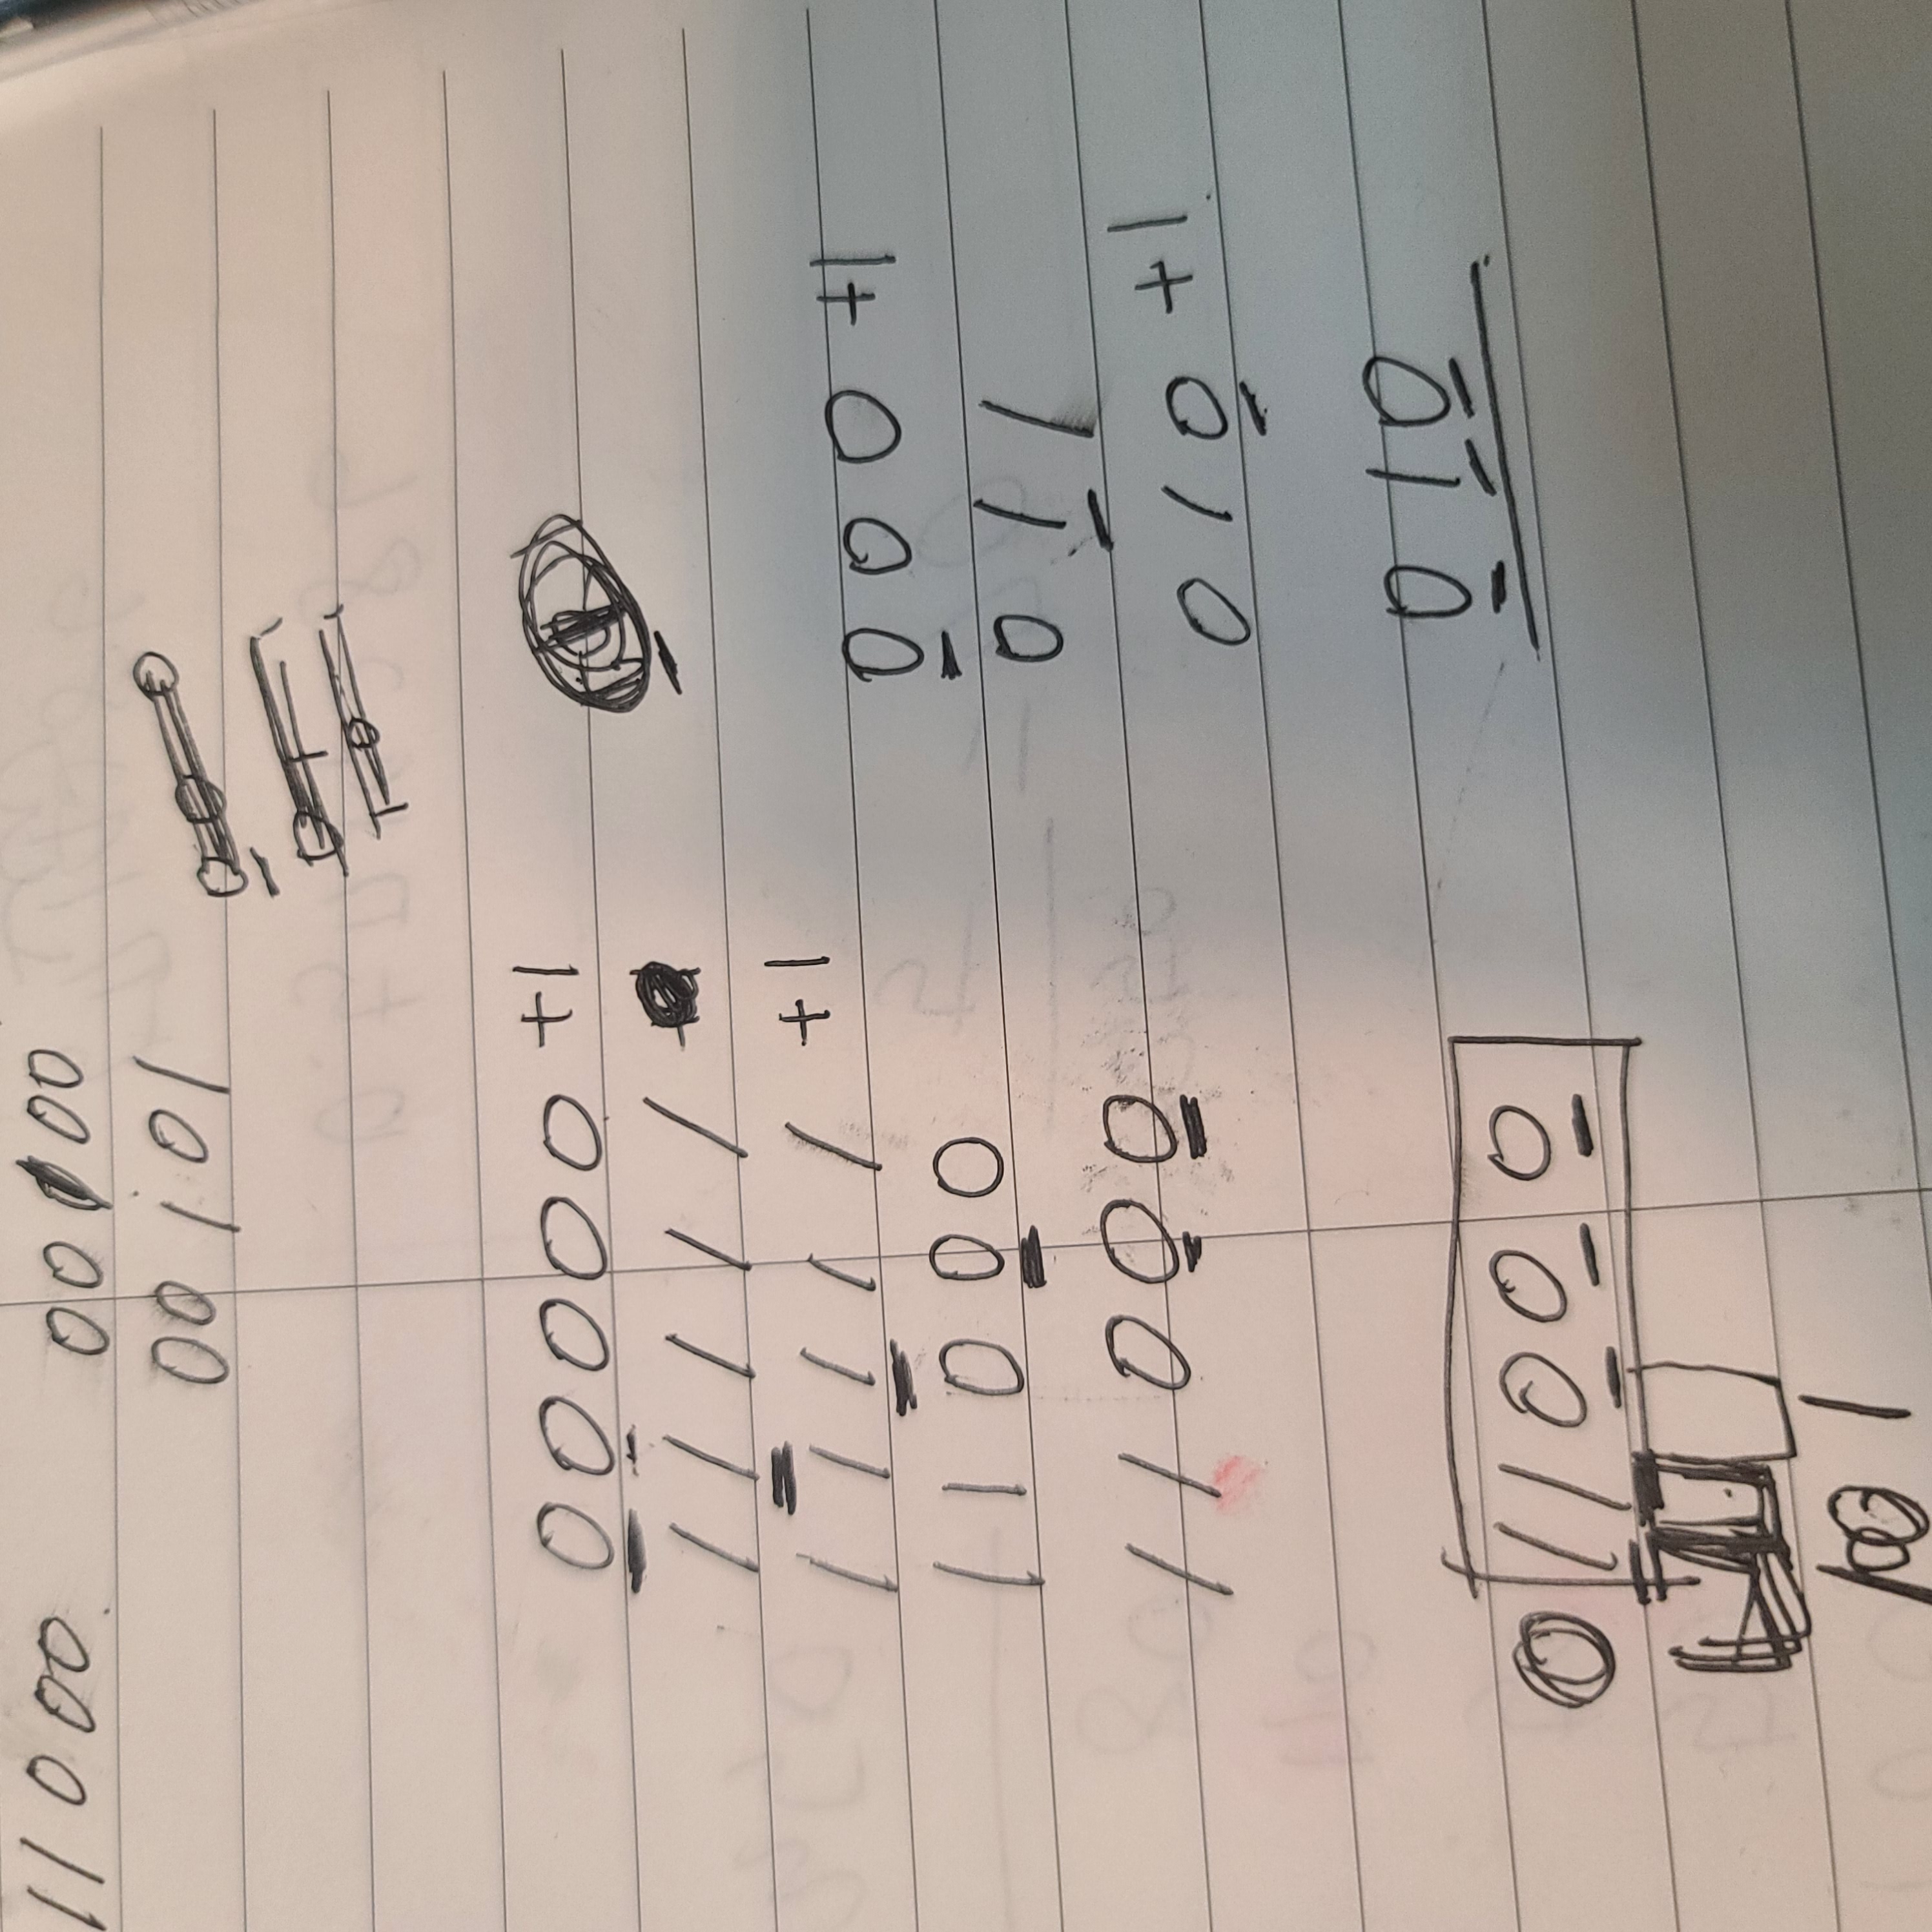 11000 00100
00101
00000 +1
11111
11111 +1
11000
11000
000 +1
011
010 +1
010
0 11000
1